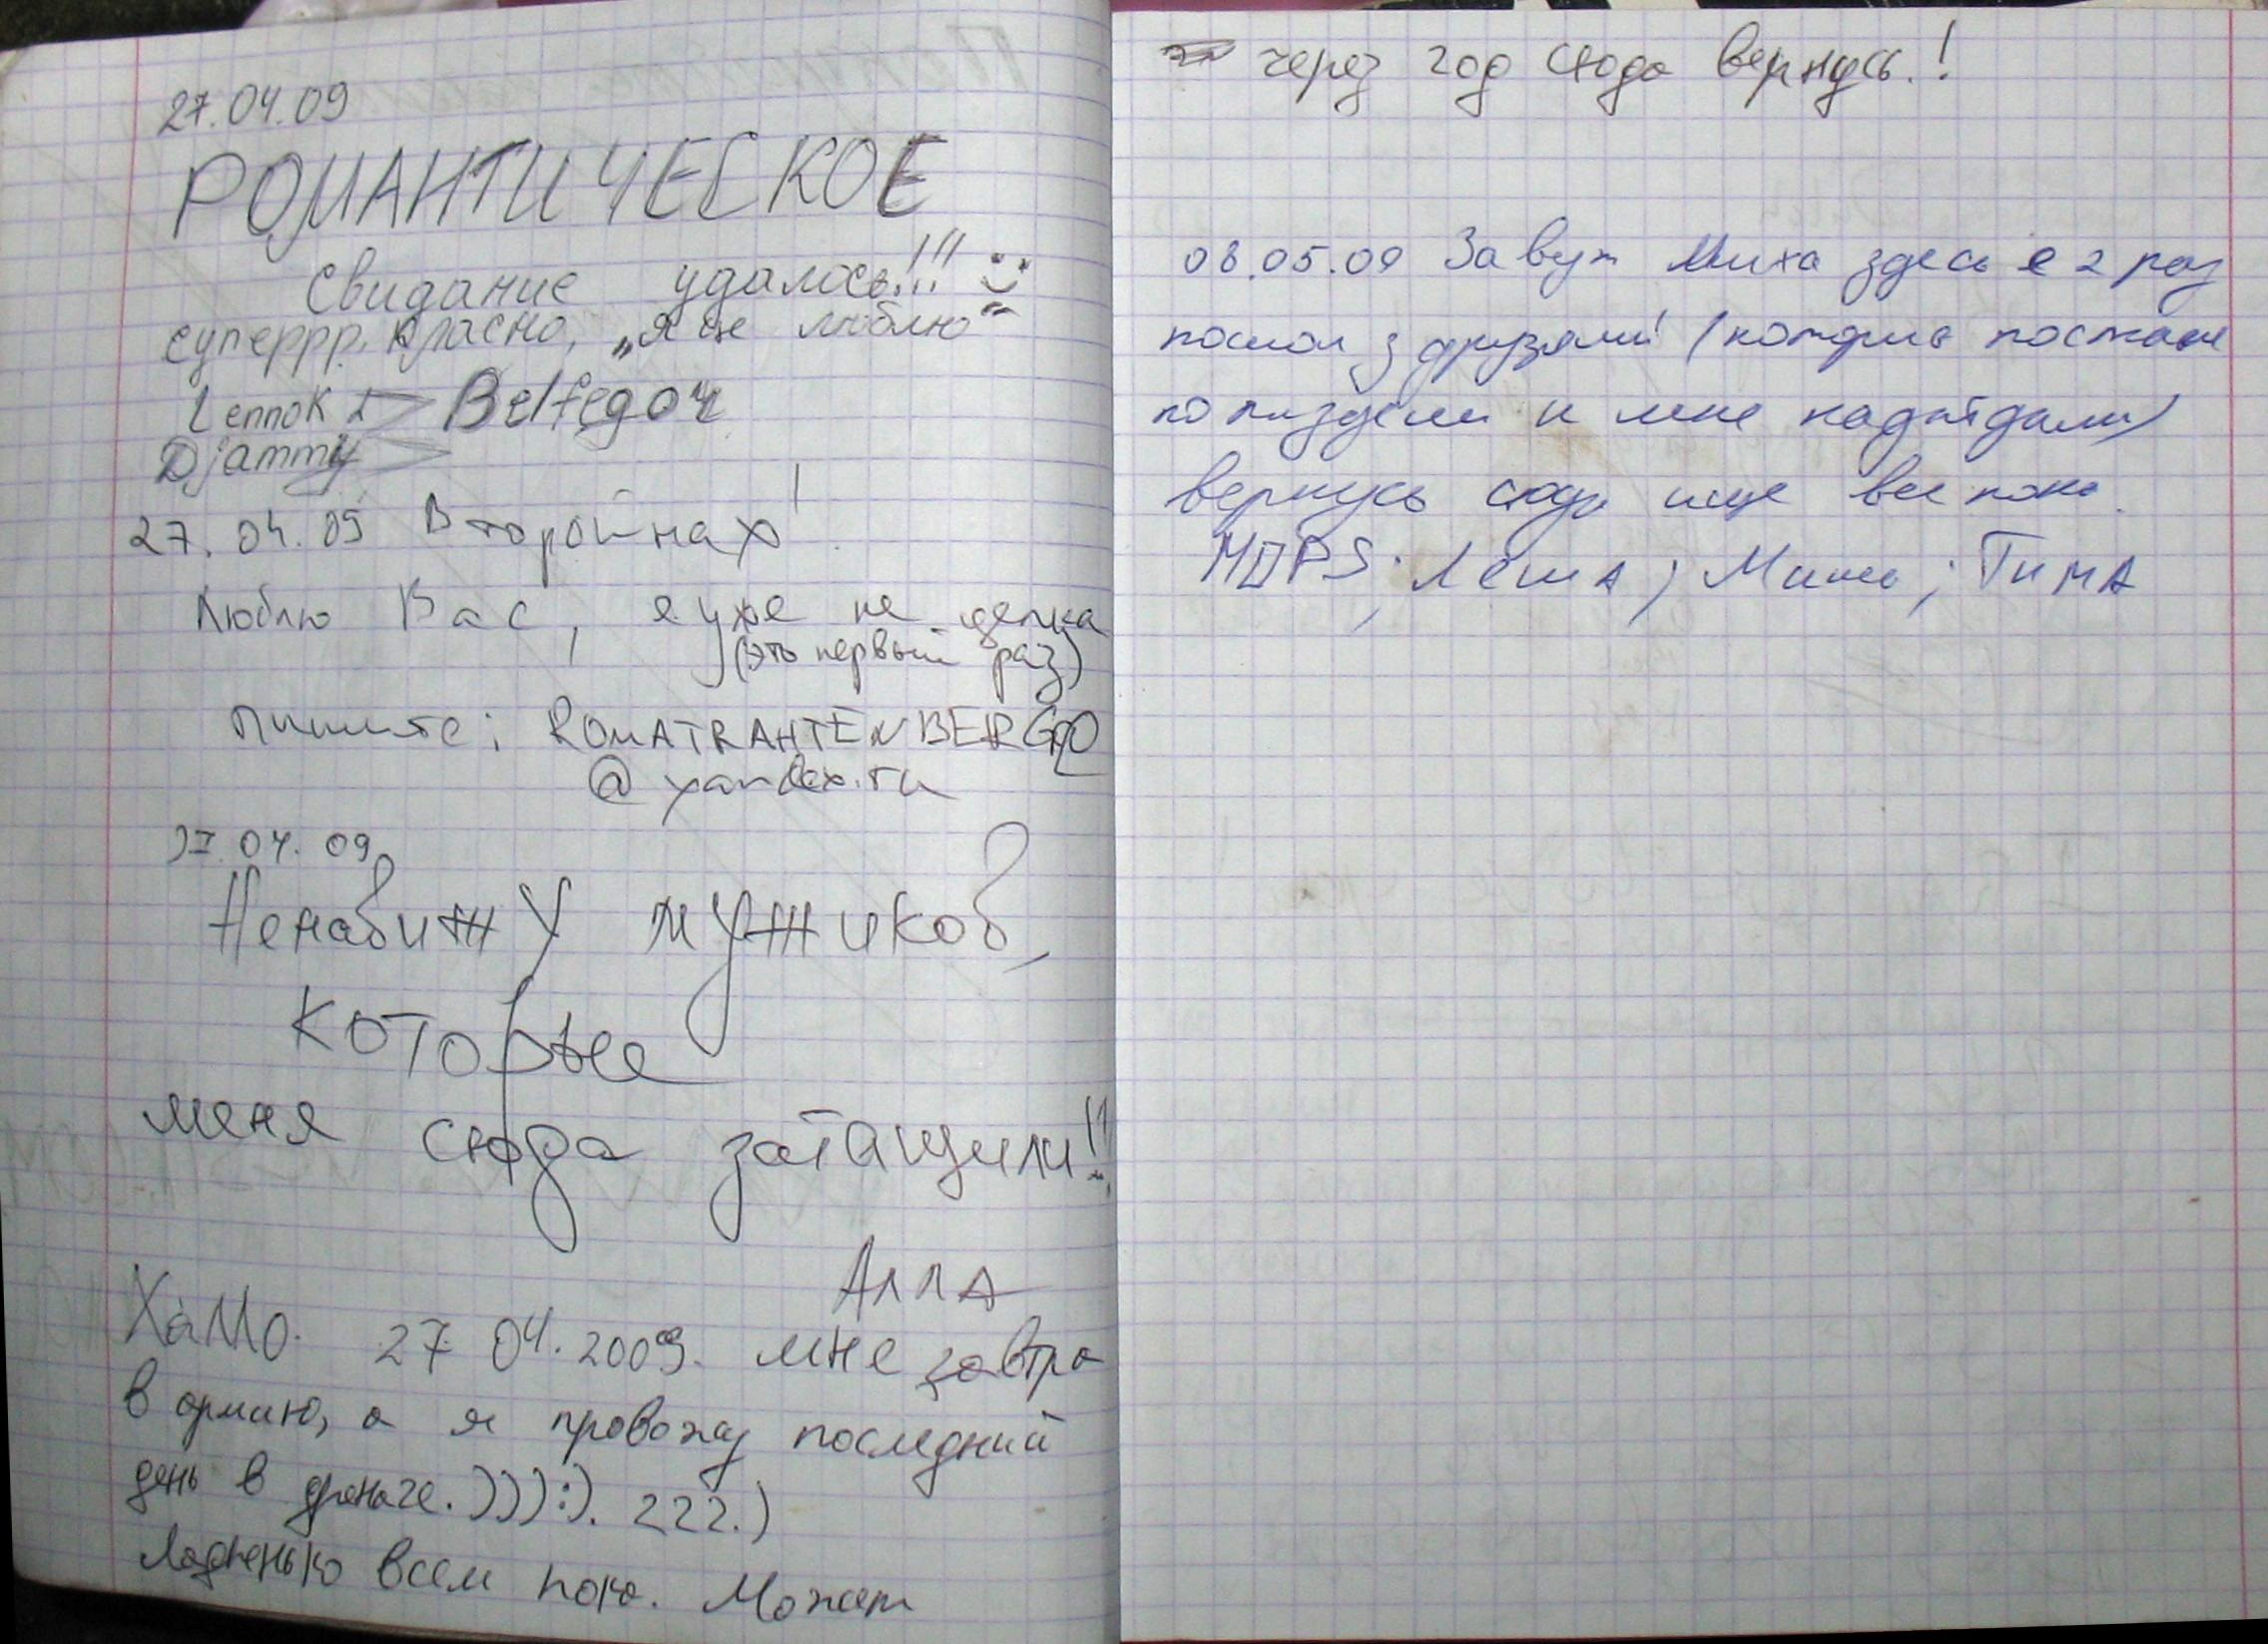 27.04.09
РОМАНТИЧЕСКОЕ
Свидание удалось!!! :)
суперрр. Класно, „я це люблю“
Lennok
Djammy Belfegor
27.04.09 Второйнах!
Люблю Вас, я уже не целка
(это первый раз)
пишите: ROMATRAHTENBERG
@yandex.ru
27.04.09
Ненавижу мужиков,
которые
меня сюда затащили!!
Алла
ХаМо. 27.04.2009. мне завтра
в армию, а я провожу последний
день в дренаже.))):). 222.)
Ладненько всем пока. Может
через год сюда вернусь.!
08.05.09 Завут Миха здесь я 2 раз
з друзями! (
и мне
вернусь сюда ище все пока.
MOPS; Лёша; Миха; Тима